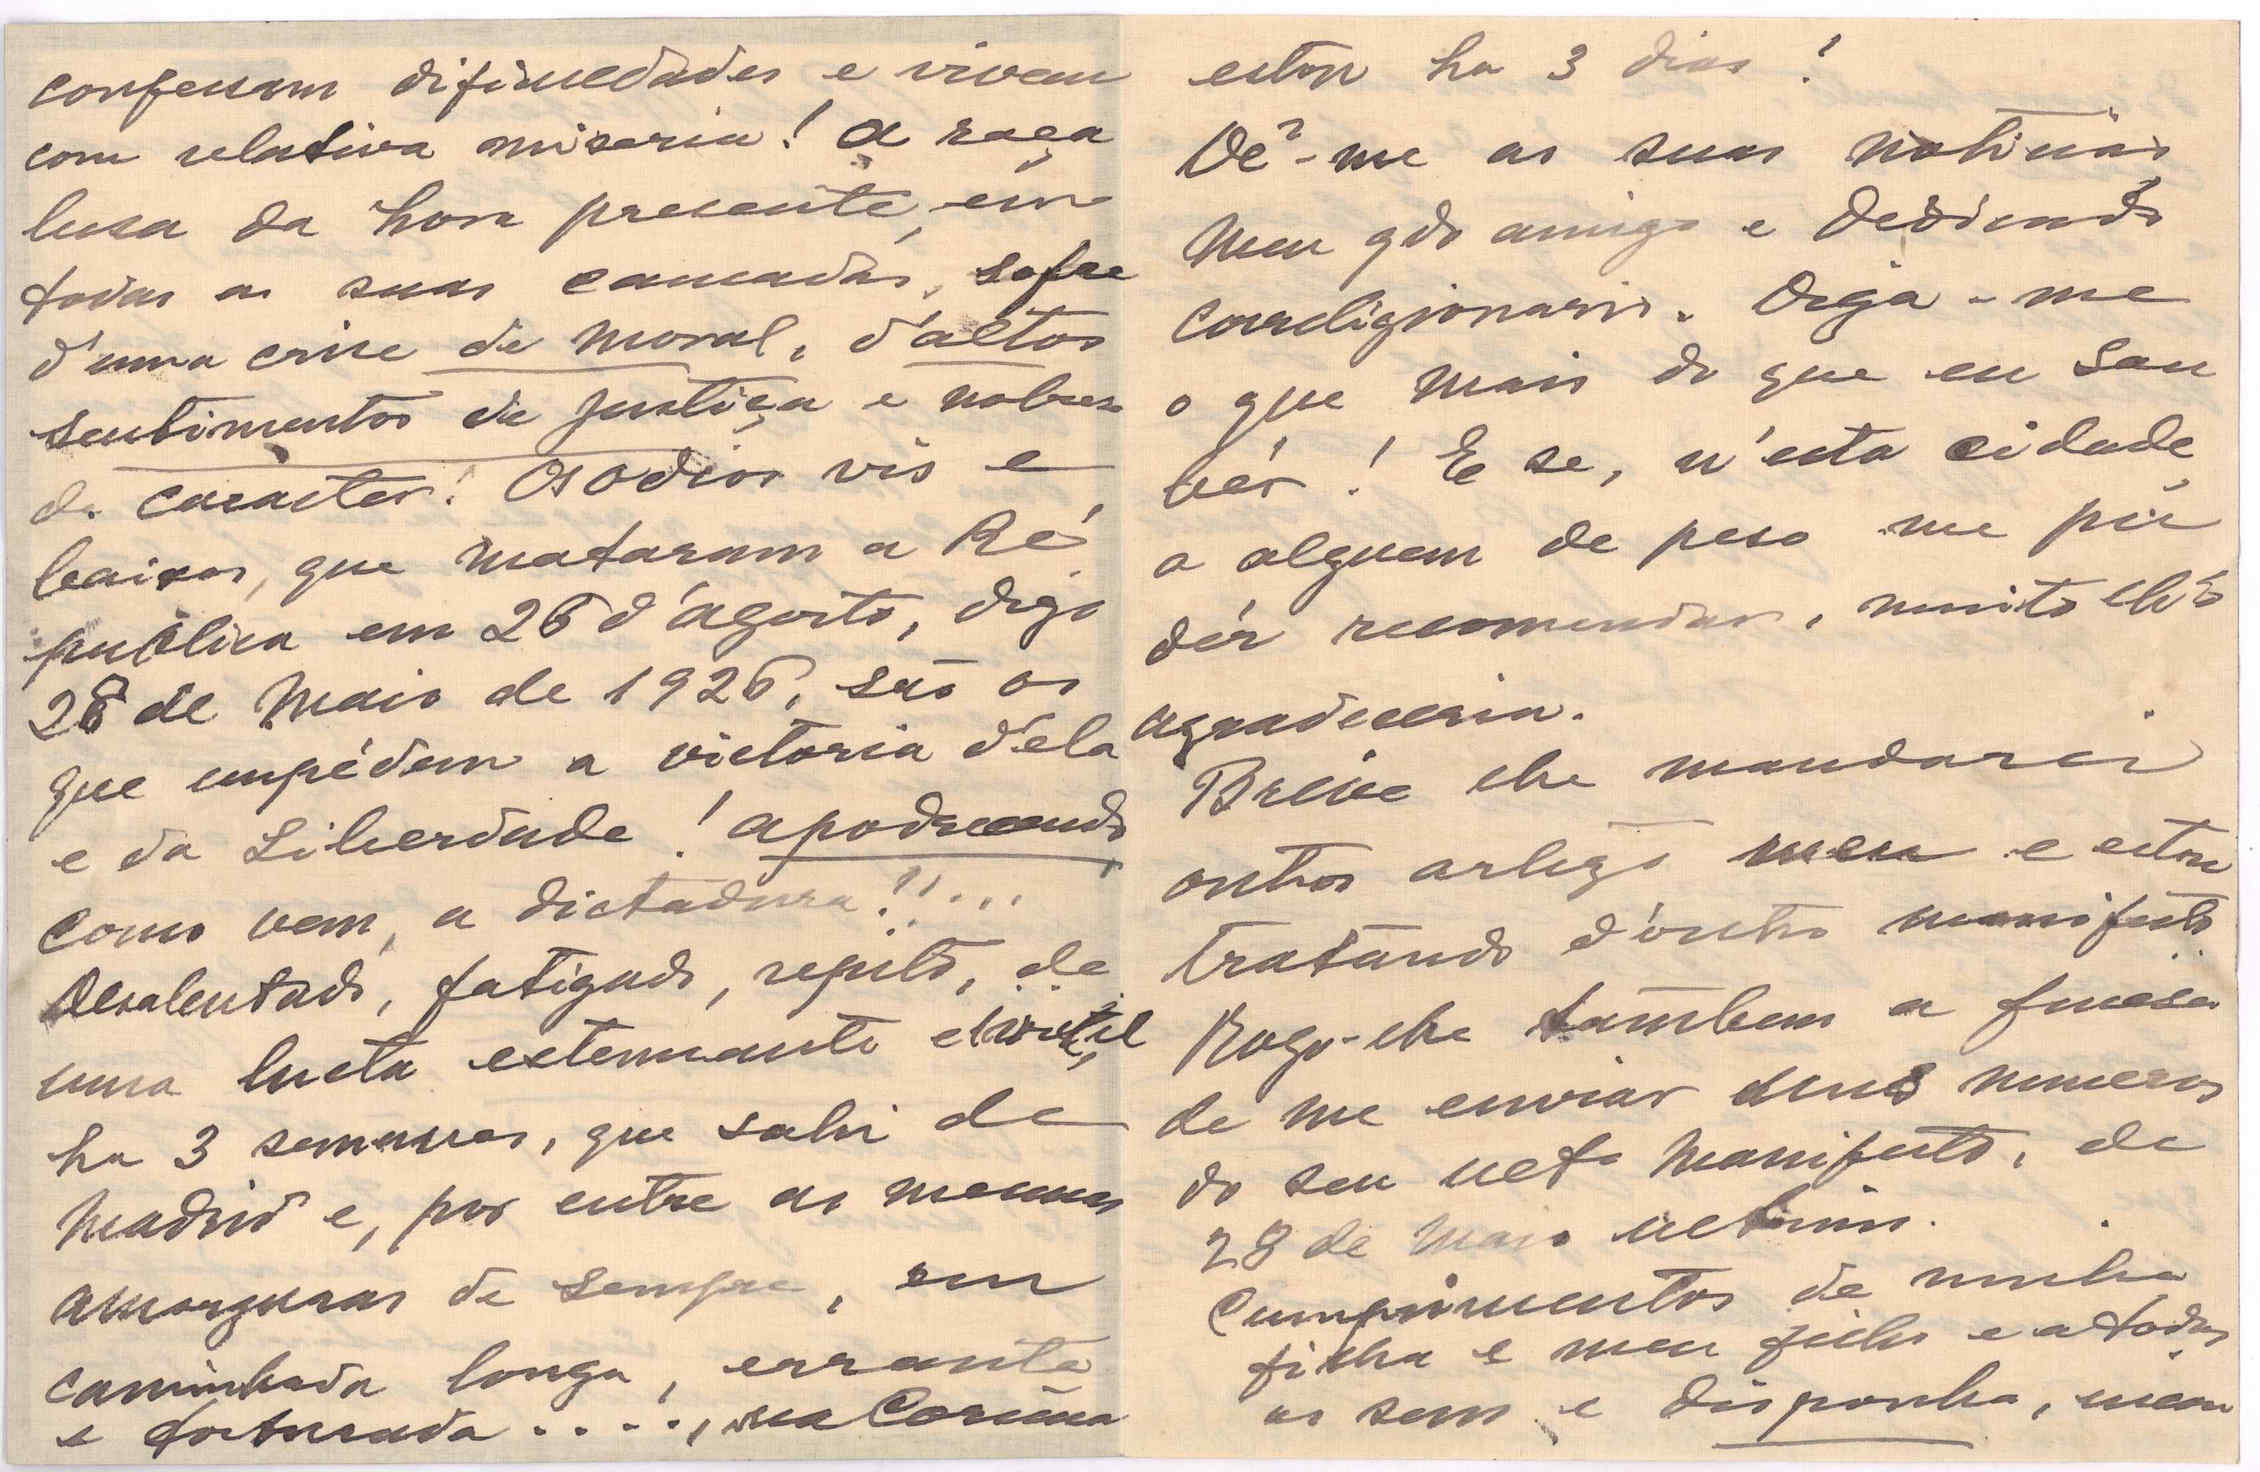 confessam dificuldades e vivem
com relativa miseria! A raça
lusa da hora presente, em
todas as suas camadas, sofre
d'uma crise de moral, d'altos
sentimentos de justiça e nobresa
de caracter! Os odios vis e
baixos, que mataram a Ré
publica em 26 d'agosto, digo
28 de Maio de 1926, são os
que impédem a victoria d'ela
e da Liberdade! apodrecendo
como vem, a dictadura!!...
Desalentado, fatigado, repito, de
uma lucta extenuante e inutil
ha 3 semanas, que sahi de
Madrid e, por entre as mesmas
amarguras de sempre, em
caminhada longa, errante
e torturada ...., na Coruña
estou ha 3 dias!
Dê-me as suas noticias
meu qdo amigo e dedicado
correligionario. Diga-me
o que mais do que eu sou
bér! E se, n'esta cidade
a alguem de peso me pu
dér recomendar, muito lh'o
agradeceria.
Breve lhe mandarei
outros artigo meu e estou
tratando d'outro manifesto
Rogo-lhe tambem a finesa
de me enviar duus numeros
do seu ult.º manifesto, de
28 de Maio ultimo.
Cumprimentos de minha
filha e meu filho e a todos
os seus e disponha, meu